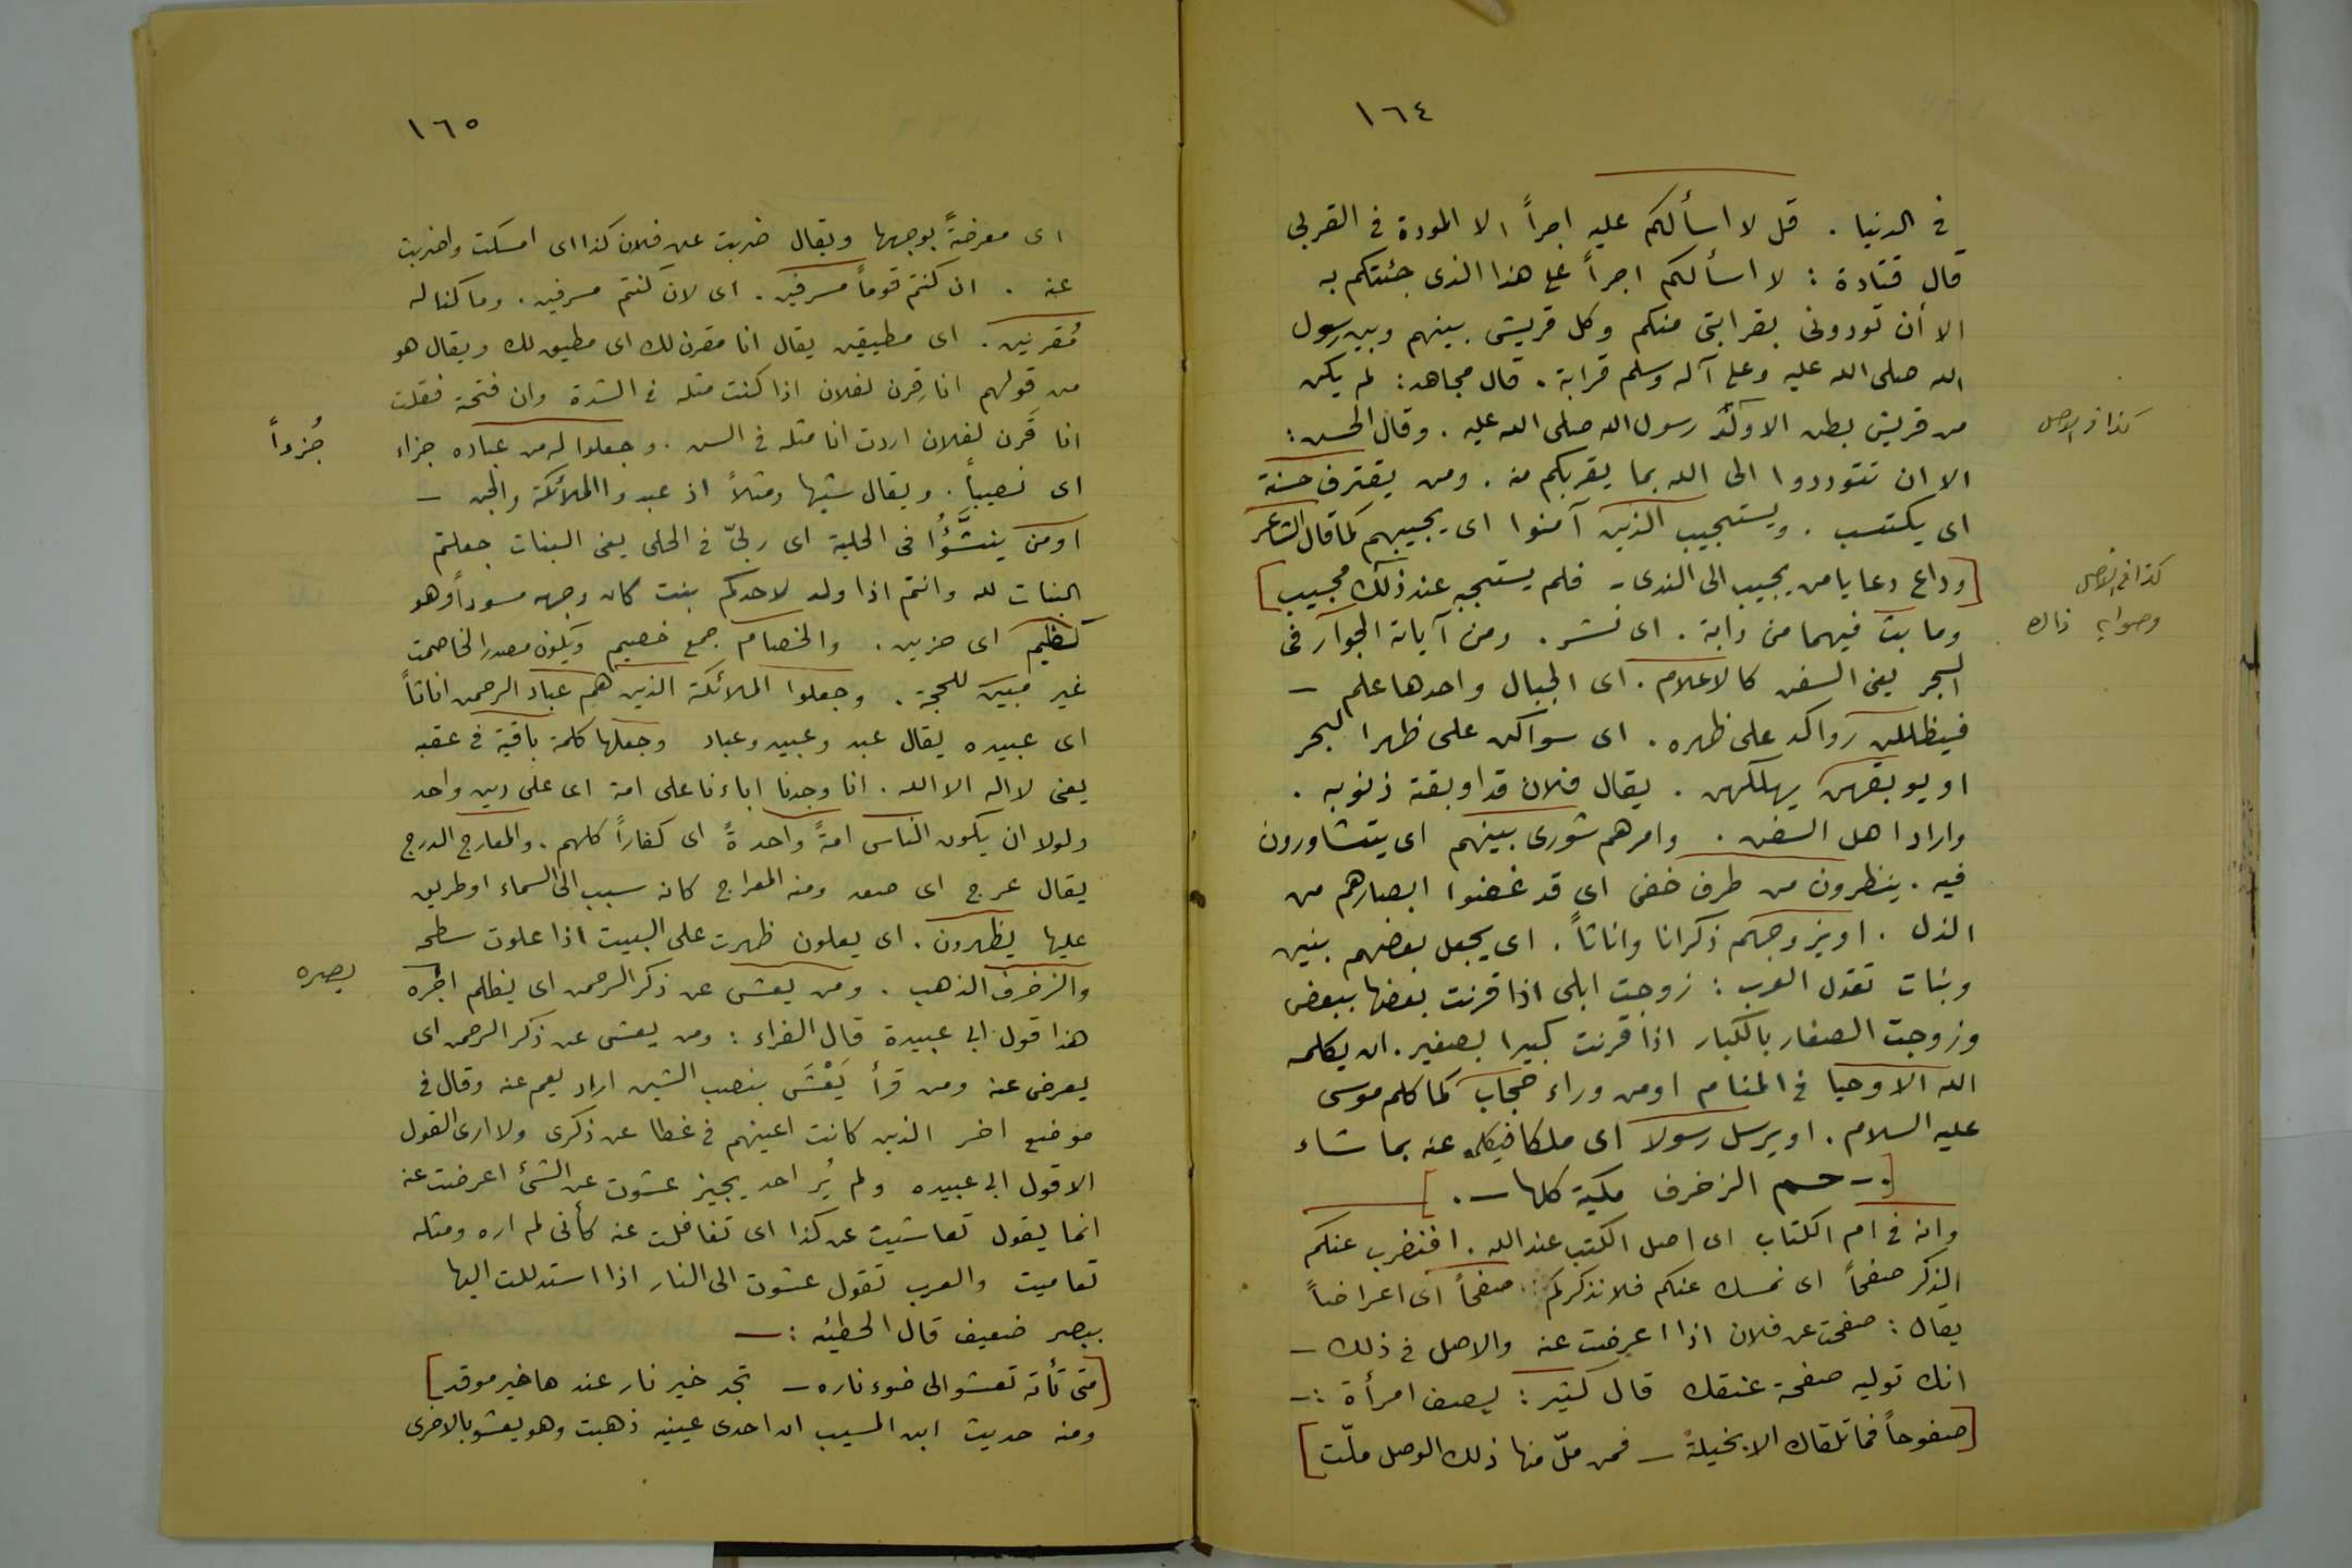 ١٦٤
في الدنيا . قل لا اسألكم عليه اجراً الا المودة في القربى
قال قتادة : لا اسألكم اجراً على هذا الذى جئتكم به
الا أن تودونى بقرابتى منكم وكل قريش بينهم وبين رسول
الله صلى الله عليه وعلى آله وسلم قرابة . قال مجاهد : لم يكن
من قريش بطن الا ولّد رسول الله صلى الله عليه . وقال الحسن :
كذا فى الاصل
الا ان تتوددوا الى الله بما يقربكم منه . ومن يقترف حسنة
اى يكتسب . ويستجيب الذين آمنوا اى يجيبهم كما قال الشاعر
[وداع دعا يا من يجيب الى الندى - فلم يستجبه عند ذلك مجيب]
كذا فى الاصل
وصوابه ذاك
وما بث فيهما من دابة . اى نشر . ومن آياته الجوار فى
البحر يعنى السفن كالاعلام . اى الجبال واحدها علم —
فيظللن رواكد على ظهره . اى سواكن على ظهر البحر
او يوبقهن يهلكهن . يقال فلان قد اوبقته ذنوبه .
واراد اهل السفن . وامرهم شورى بينهم اى يتشاورون
فيه . ينظرون من طرف خفى اى قد غضوا ابصارهم من
الذل . او يزوجهم ذكرانا واناثاً . اى يجعل بعضهم بنين
وبنات تقول العرب : زوجت ابلى اذا قرنت بعضها ببعض
وزوجت الصغار بالكبار اذا قرنت كبيرا بصغير . ان يكلمه
الله الا وحيا فى المنام او من وراء حجاب كما كلم موسى
عليه السلام . او يرسل رسولا اى ملكا فيكلمه عنه بما شاء
[. — حم الزخرف مكية كلها — .]
وانه فى ام الكتاب اى اصل الكتب عند الله . افنضرب عنكم
الذكر صفحاً اى نمسك عنكم فلا نذكركم صفحاً اى اعراضاً
يقال : صفحت عن فلان اذا اعرضت عنه والاصل فى ذلك —
انك توليه صفحة عنقك قال كثير : يصف امرأة :—
[صفوحاً فما تلقاك الا بخيلةً — فمن ملّ منها ذلك الوصل ملّت]
١٦٥
اى معرضةً بوجهها ويقال ضربت عن فلان كذا اى امسكت واضربت
عنه . ان كنتم قوماً مسرفين . اى لان كنتم مسرفين . وما كنا له
مُقرنين . اى مطيقين يقال انا مقرن لك اى مطيق لك ويقال هو
من قولهم انا قِرن لفلان اذا كنت مثله فى الشدة وان فتحة فقلت
انا قَرن لفلان اردت انا مثله فى السن . وجعلوا له من عباده جزاء
جُزءاً
اى نصيباً . ويقال شبها ومثلاً اذ عبدوا الملائكة والجن —
اومن ينشَّؤُا فى الحلية اى ربىّ فى الحلى يعنى البنات جعلتم
البنات لله وانتم اذا ولد لاحدكم بنت كان وجهه مسوداً وهو
كظيم اى حزين . والخصام جمع خصيم ويكون مصدرا لخاصمت
غير مبين للحجة . وجعلوا الملائكة الذين هم عباد الرحمن اناثاً
اى عبيده يقال عبد وعبيد وعباد وجعلها كلمة باقية فى عقبه
يعنى لا اله الا الله . انا وجدنا اباءنا على امة اى على دين واحد
ولولا ان يكون الناس امةً واحدةً اى كفاراً كلهم . والمعارج الدرج
يقال عرج اى صعد ومنه المعراج كانه سبب الى السماء او طريق
عليها يظهرون . اى يعلون ظهرت على البيت اذا علوت سطحه
والزخرف الذهب . ومن يعش عن ذكر الرحمن اى يظلم اجره
بصره
هذا قول ابى عبيدة قال الفراء : ومن يعش عن ذكر الرحمن اى
يعرض عنه ومن قرأ يَعْشَ بنصب الشين اراد يعم عنه وقال فى
موضع اخر الذين كانت اعينهم فى غطا عن ذكرى ولا ارى القول
الا قول ابى عبيده ولم يُر احد يجيز عشوت عن الشئ اعرضت عنه
انما يقول تعاشيت عن كذا اى تغافلت عنه كأنى لم اره ومثله
تعاميت والعرب تقول عشوت الى النار اذا استدللت اليها
ببصر ضعيف قال الحطيئه :—
[متى تأته تعشو الى ضوء ناره — تجد خير نار عندها خير موقد]
ومنه حديث ابن المسيب ان احدى عينيه ذهبت وهو يعشو بالاخرى